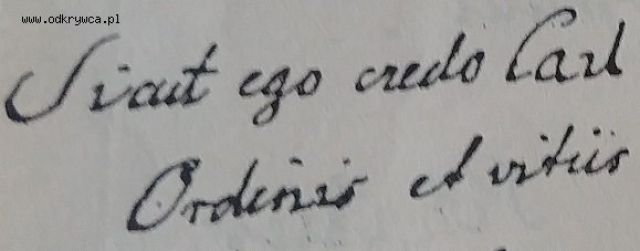 www.odkrywca.pl
Sicut ego credo Carl
Ordinis et vitiis